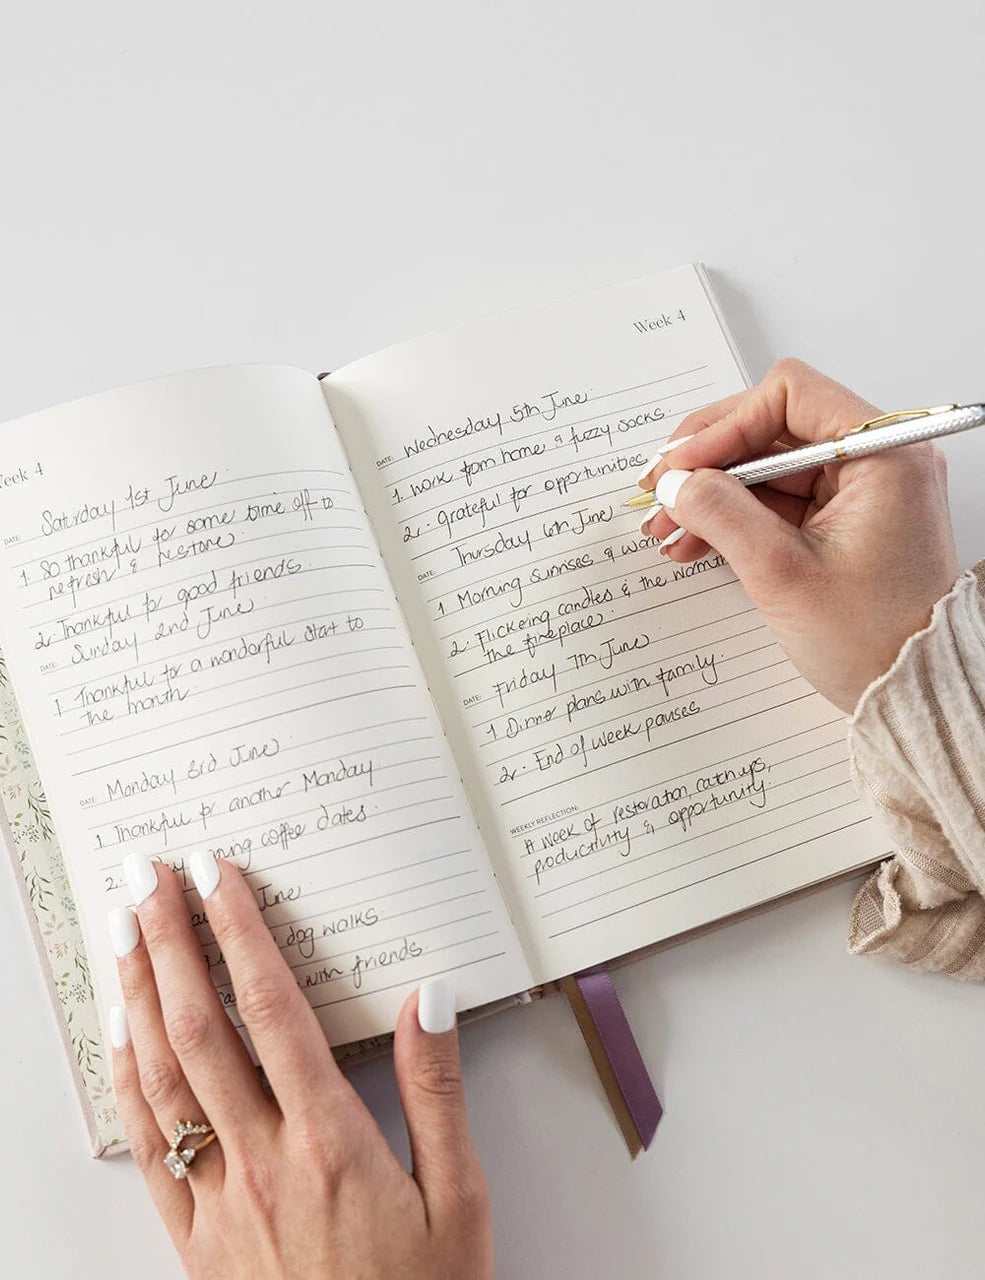 Week 4
DATE: Saturday 1st June
1. So thankful for some time off to
refresh & restore.
2. Thankful for good friends.
DATE: Sunday 2nd June
1 Thankful for a wonderful start to
the month.
DATE: Monday 3rd June
1 Thankful for another Monday
2. coffee dates.
June
dog walks.
with friends.
Week 4
DATE: Wednesday 5th June.
1. work from home & fuzzy socks.
2. grateful for opportunities
DATE: Thursday 6th June
1 Morning sunrises &
2. Flickering candles & the warmth
the fireplace.
DATE: Friday 7th June
1 Dinner plans with family.
2. End of week pauses
WEEKLY REFLECTION:
A week of restoration, catch ups,
productivity & opportunity.